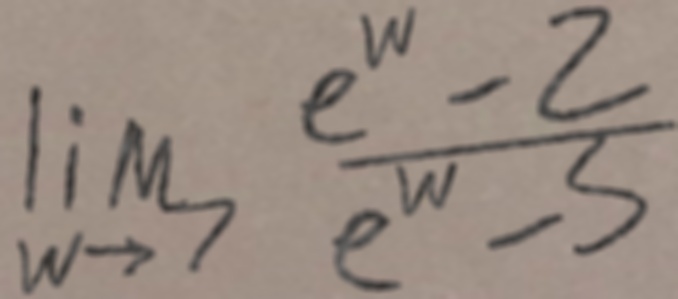 lim w→7 (e^w - 2)/(e^w - 5)